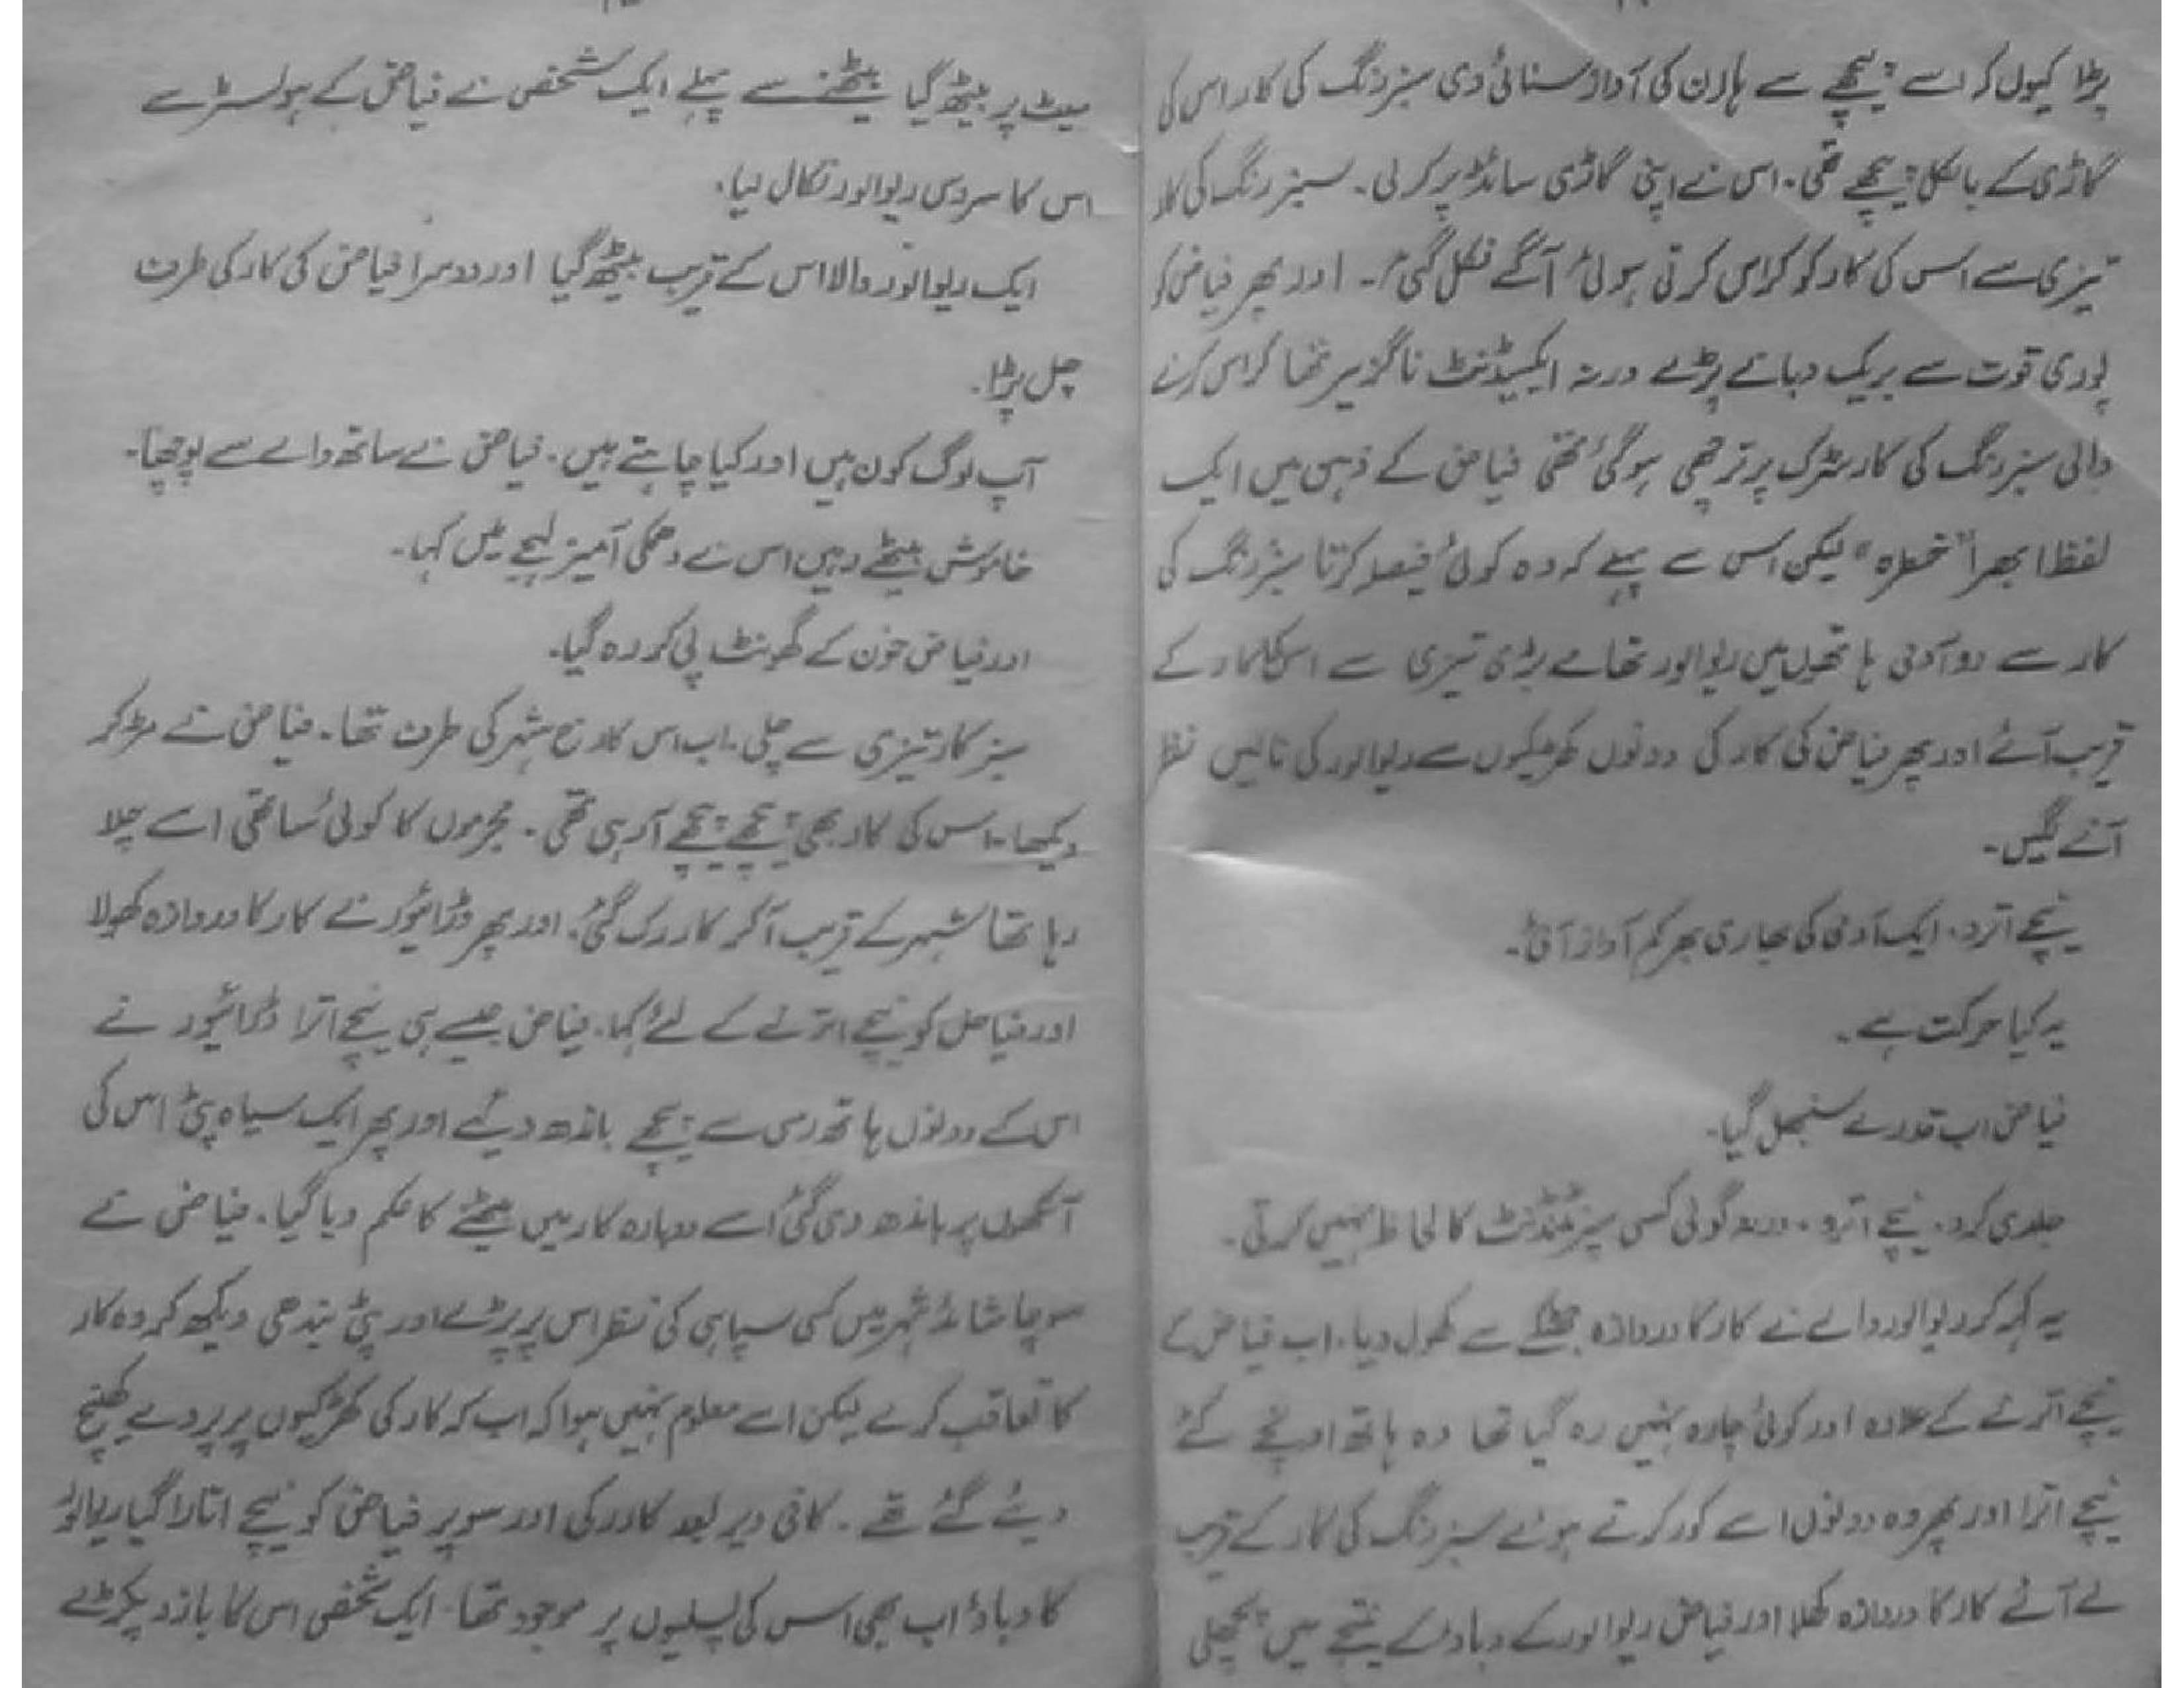 پڑا کیوں کر اسے پیچھے سے ہارن کی آواز سنائی دی سبز رنگ کی کار اس کی
گاڑی کے بالکل پیچھے تھی۔ اس نے اپنی گاڑی سائڈ پر کر لی۔ سبز رنگ کی کار
تیزی سے اس کی کار کو کراس کرتی ہوئی آگے نکل گئی۔ اور پھر فیاض کو
پوری قوت سے بریک دبانے پڑے ورنہ ایکسیڈنٹ ناگزیر تھا کراس کرنے
والی سبز رنگ کی کار سڑک پر ترچھی ہو گئی تھی فیاض کے ذہن میں ایک
لفظ ابھرا "خطرہ" لیکن اس سے پہلے کہ وہ کوئی فیصلہ کرتا سبز رنگ کی
کار سے دو آدمی ہاتھوں میں ریوالور تھامے بڑی تیزی سے اس کی کار کے
قریب آئے اور پھر فیاض کی کار کی دونوں کھڑکیوں سے ریوالور کی نالیں نظر
آنے لگیں۔
نیچے اترو۔ ایک آدمی کی بھاری بھرکم آواز آئی۔
یہ کیا حرکت ہے۔
فیاض اب قدرے سنبھل گیا۔
جلدی کرو۔ نیچے اترو۔ ورنہ گولی کسی سپرنٹنڈنٹ کا لحاظ نہیں کرتی۔
یہ کہہ کر ریوالور والے نے کار کا دروازہ جھٹکے سے کھول دیا۔ اب فیاض کے
نیچے اترنے کے علاوہ اور کوئی چارہ نہیں رہ گیا تھا وہ ہاتھ اونچے کئے
نیچے اترا اور پھر وہ دونوں اسے کور کرتے ہوئے سبز رنگ کی کار کے قریب
لے آئے کار کا دروازہ کھلا اور فیاض ریوالور کے دباؤ کے نتیجے میں پچھلی
سیٹ پر بیٹھ گیا بیٹھنے سے پہلے ایک شخص نے فیاض کے ہولسٹر سے
اس کا سروس ریوالور نکال لیا۔
ایک ریوالور والا اس کے قریب بیٹھ گیا اور دوسرا فیاض کی کار کی طرف
چل پڑا۔
آپ لوگ کون ہیں اور کیا چاہتے ہیں۔ فیاض نے ساتھ والے سے پوچھا۔
خاموش بیٹھے رہیں اس نے دھمکی آمیز لہجے میں کہا۔
اور فیاض خون کے گھونٹ پی کر رہ گیا۔
سبز کار تیزی سے چلی۔ اب اس کا رخ شہر کی طرف تھا۔ فیاض نے مڑ کر
دیکھا۔ اس کی کار بھی پیچھے پیچھے آ رہی تھی۔ مجرموں کا کوئی ساتھی اسے چلا
رہا تھا شہر کے قریب آ کر کار رک گئی۔ اور پھر ڈرائیور نے کار کا دروازہ کھولا
اور فیاض کو نیچے اترنے کے لئے کہا۔ فیاض جیسے ہی نیچے اترا ڈرائیور نے
اس کے دونوں ہاتھ رسی سے پیچھے باندھ دیئے اور پھر ایک سیاہ پٹی اس کی
آنکھوں پر باندھ دی گئی اسے دوبارہ کار میں بیٹھنے کا حکم دیا گیا۔ فیاض نے
سوچا شائد شہر میں کسی سپاہی کی نظر اس پر پڑے اور پٹی بندھی دیکھ کر وہ کار
کا تعاقب کرے لیکن اسے معلوم نہیں ہوا کہ اب کہ کار کی کھڑکیوں پر پردے کھینچ
دیئے گئے تھے۔ کافی دیر بعد کار رکی اور سوپر فیاض کو نیچے اتارا گیا ریوالور
کا دباؤ اب بھی اس کی پسلیوں پر موجود تھا۔ ایک شخص اس کا بازو پکڑے